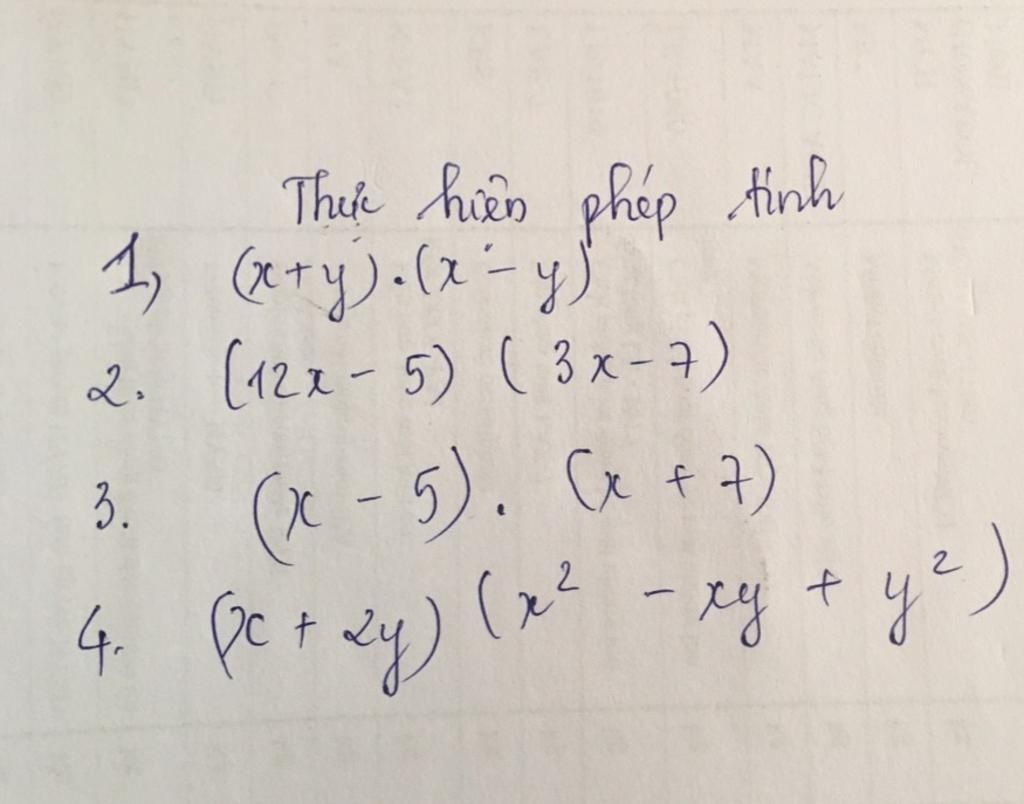 Thực hiện phép tính
1, (x+y).(x-y)
2. (12x - 5) (3x-7)
3. (x - 5). (x + 7)
4. (x + 2y) (x² - xy + y²)